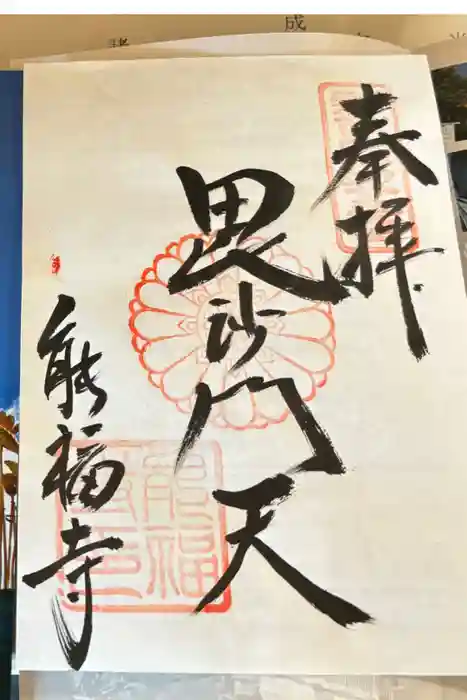 奉拝
毘沙門天
能福寺
成